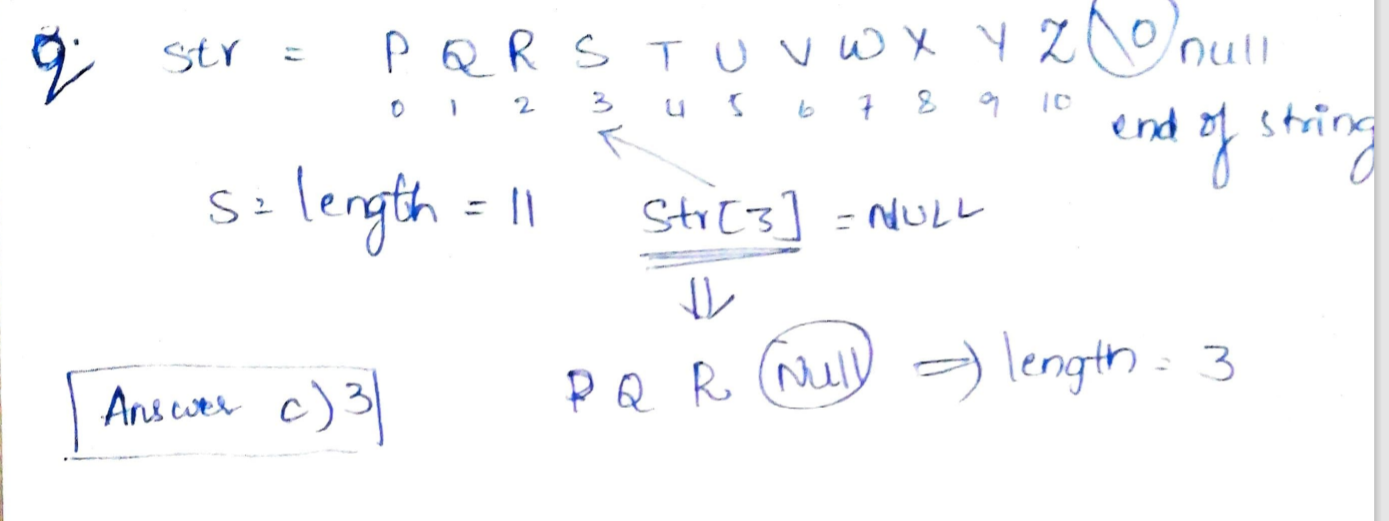 Q. str = P Q R S T U V W X Y Z \0 null
0 1 2 3 4 5 6 7 8 9 10 end of string
S = length = 11 Str[3] = NULL
⇓
P Q R Null ⇒ length = 3
Answer c) 3